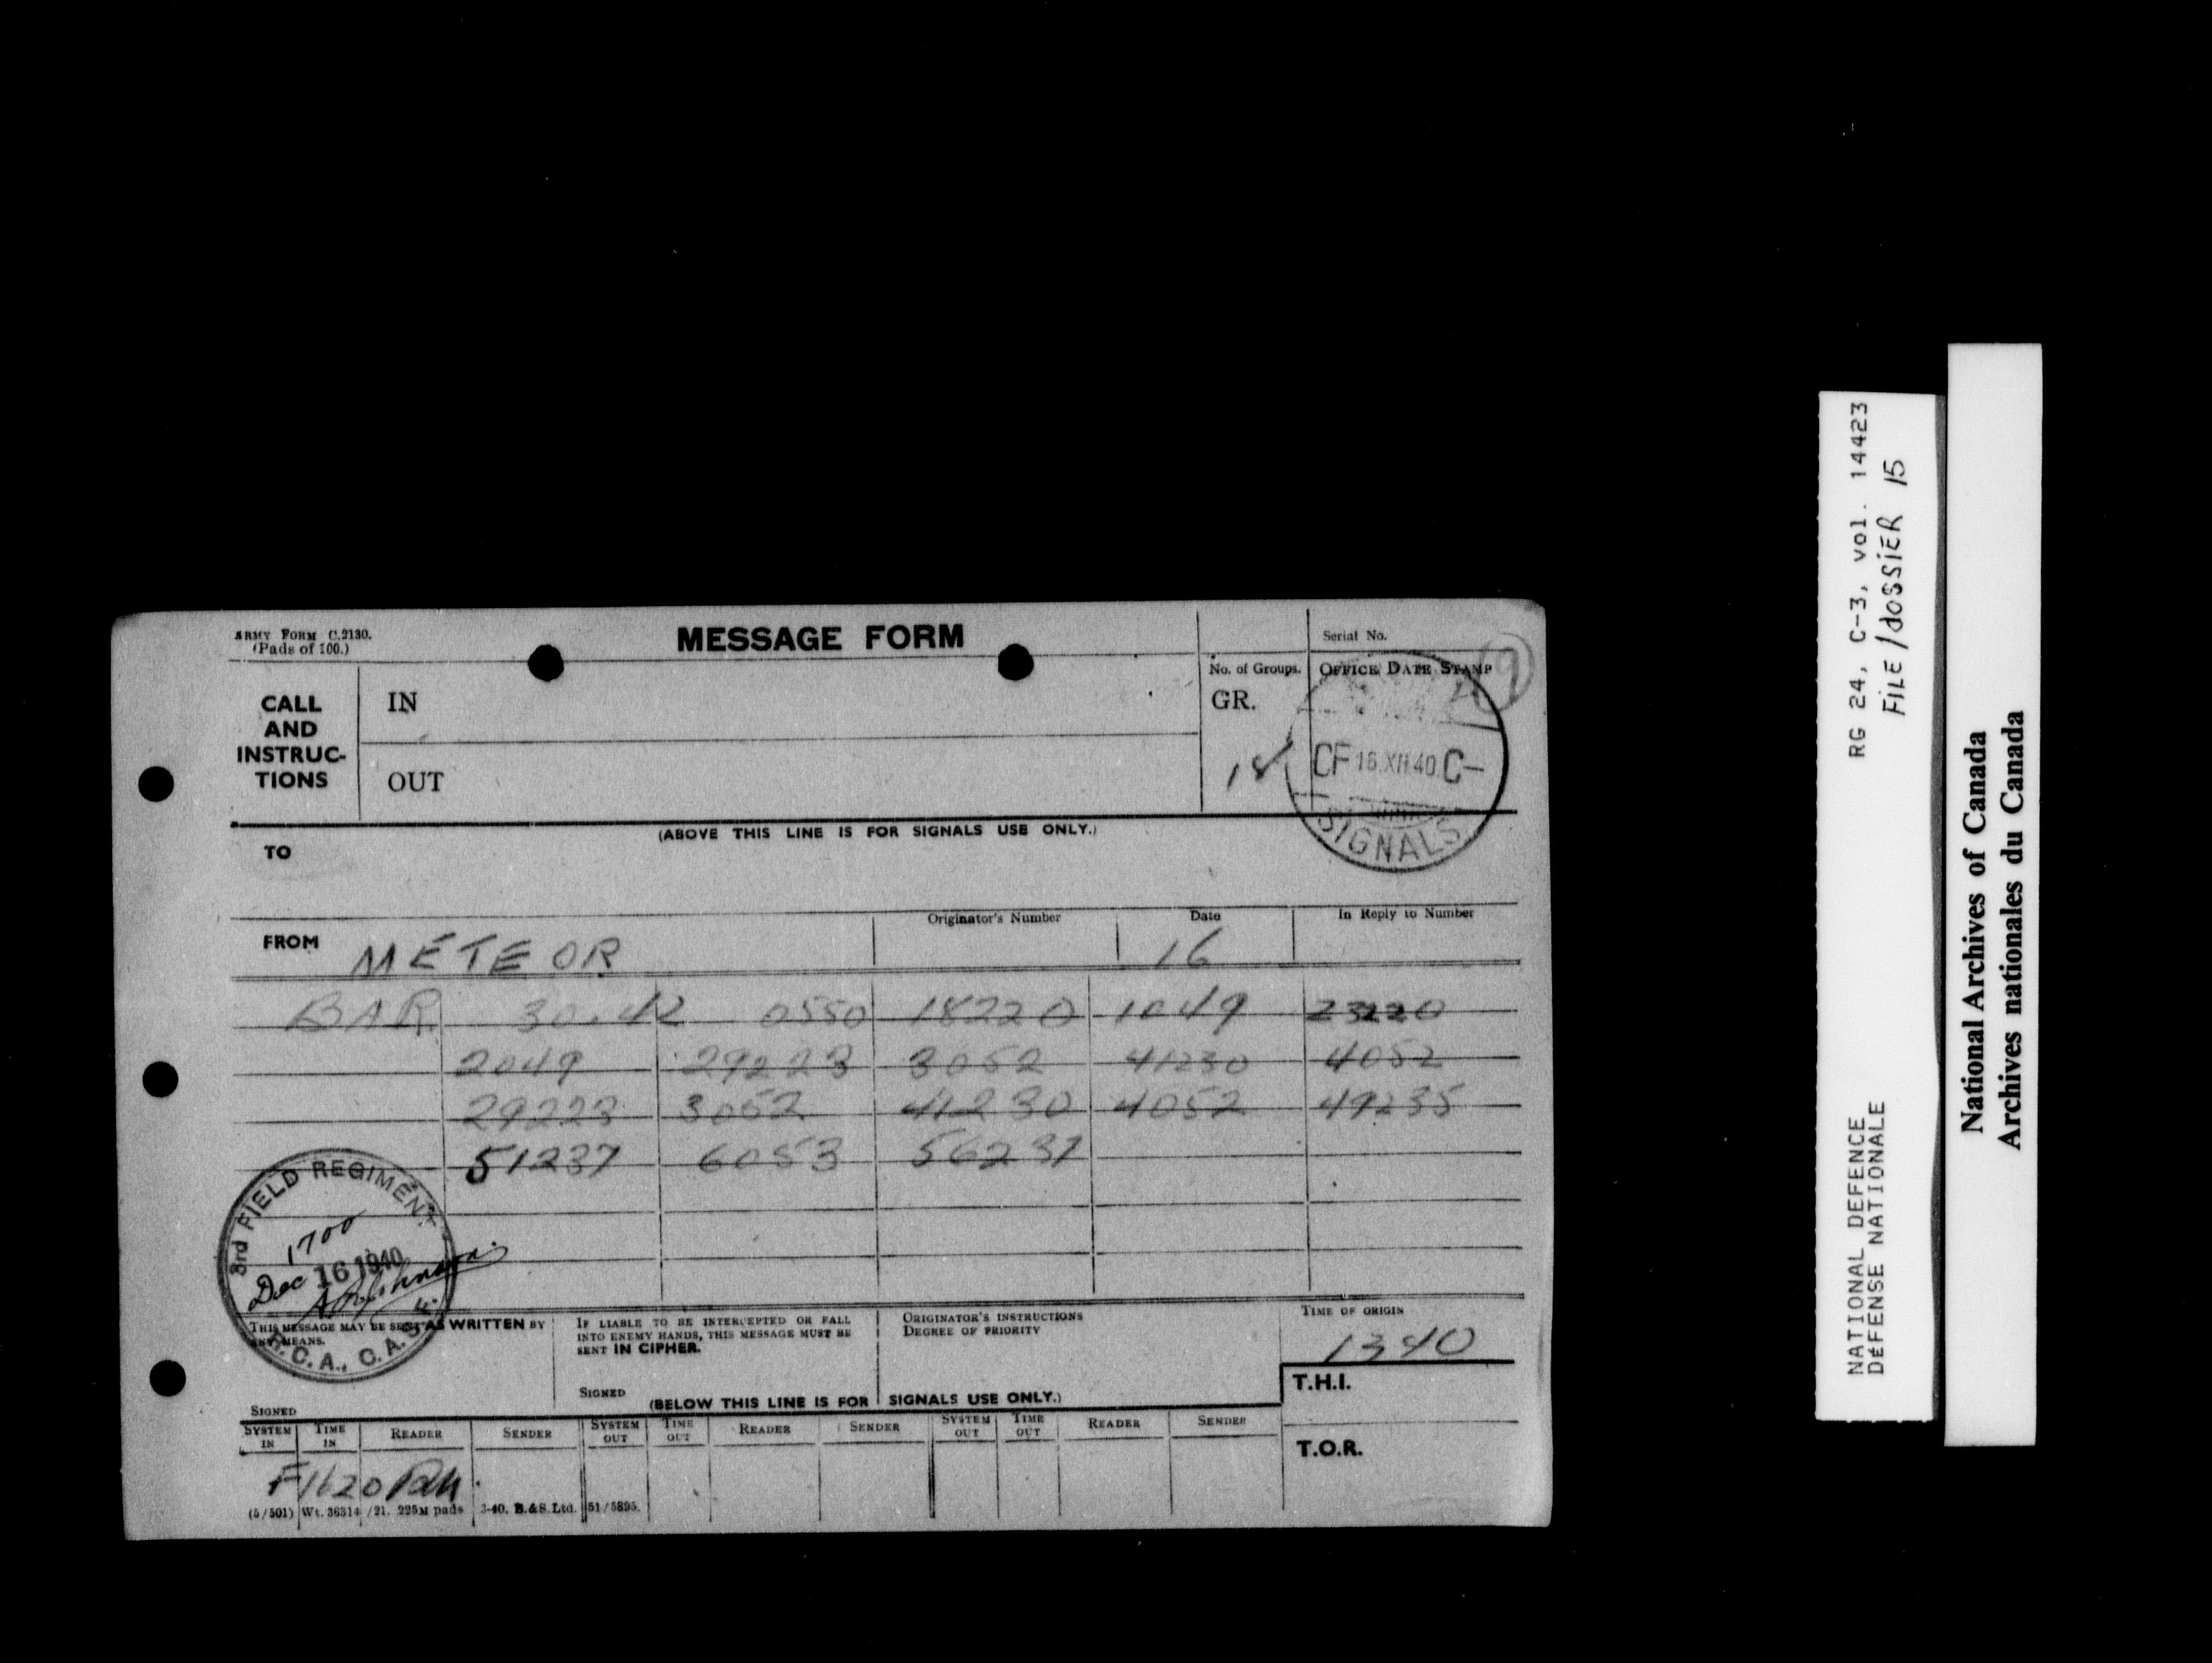 ARMY FORM C.2130.
(Pads of 100.)
MESSAGE FORM
Serial No.
No. of Groups.
OFFICE DATE STAMP
CALL
AND
INSTRUC-
TIONS
IN
OUT
GR.
18
CF 16.XII.40 C-
SIGNALS
(ABOVE THIS LINE IS FOR SIGNALS USE ONLY.)
TO
Originator's Number
Date
In Reply to Number
FROM METEOR
16
BAR 30.42 0550 18220 1049 23220
2049 29223 3052 41230 4052
29223 3052 41230 4052 49235
51237 6053 56237
3rd FIELD REGIMENT
1700
Dec 16 1940
R.C.A., C.A.S.F.
THIS MESSAGE MAY BE SENT AS WRITTEN BY
ANY MEANS.
SIGNED
IF LIABLE TO BE INTERCEPTED OR FALL
INTO ENEMY HANDS, THIS MESSAGE MUST BE
SENT IN CIPHER.
SIGNED
ORIGINATOR'S INSTRUCTIONS
DEGREE OF PRIORITY
TIME OF ORIGIN
1340
T.H.I.
T.O.R.
(BELOW THIS LINE IS FOR SIGNALS USE ONLY.)
SYSTEM IN TIME IN READER SENDER SYSTEM OUT TIME OUT READER SENDER SYSTEM OUT TIME OUT READER SENDER
F 1620
(5/501) Wt. 36314 /21. 225M pads 3-40. B.&S. Ltd. 51/5895.
RG 24, C-3, vol. 14423
FILE/dossier 15
NATIONAL DEFENCE
DÉFENSE NATIONALE
National Archives of Canada
Archives nationales du Canada